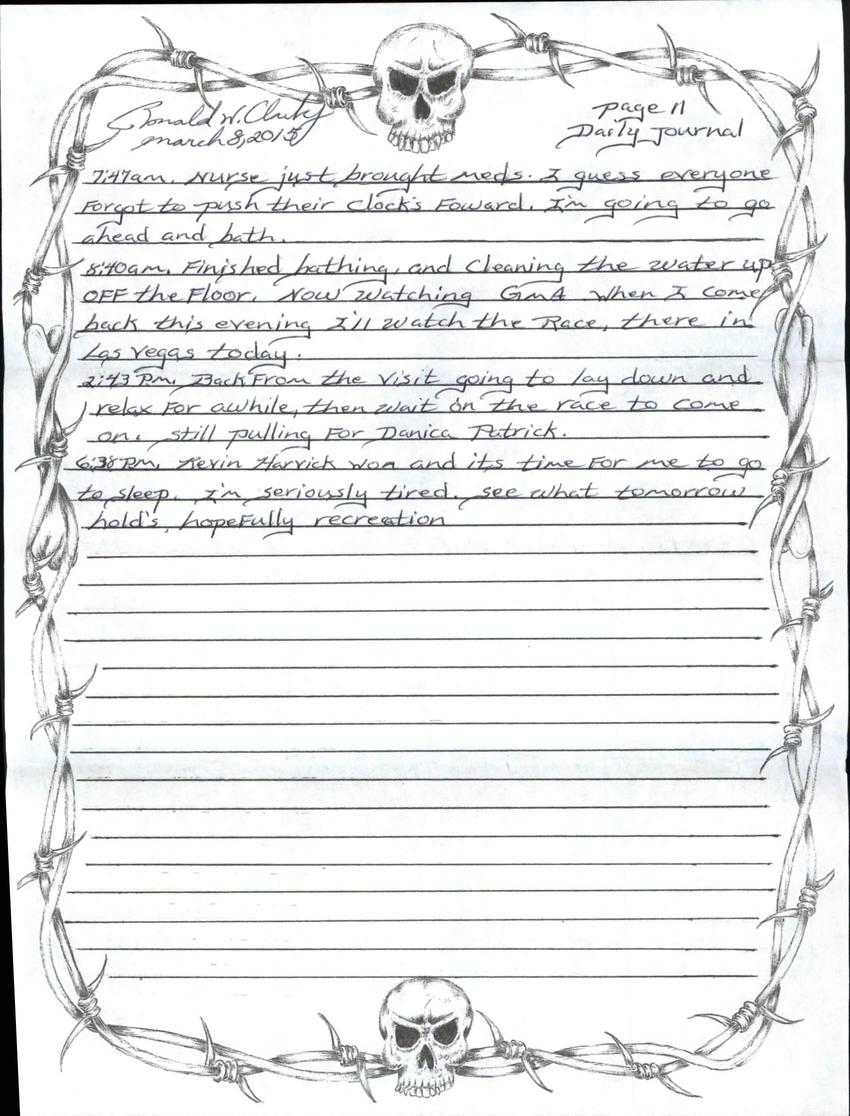 Ronald W. Clark Jr
March 8, 2015
Page 11
Daily Journal
7:47am. Nurse just brought meds. I guess everyone
Forgot to push their Clock's Foward. I'm going to go
ahead and bath.
8:40am. Finished bathing, and Cleaning the water up
OFF the Floor. Now watching GMA when I come
back this evening I'll watch the Race, there in
Las Vegas today.
2:43 Pm. Back From the visit going to lay down and
relax For awhile, then wait on the race to come
on. still pulling For Danica Patrick.
6:38 Pm. Kevin Harvick won and its time For me to go
to sleep. I'm seriously tired. see what tomorrow
hold's, hopeFully recreation